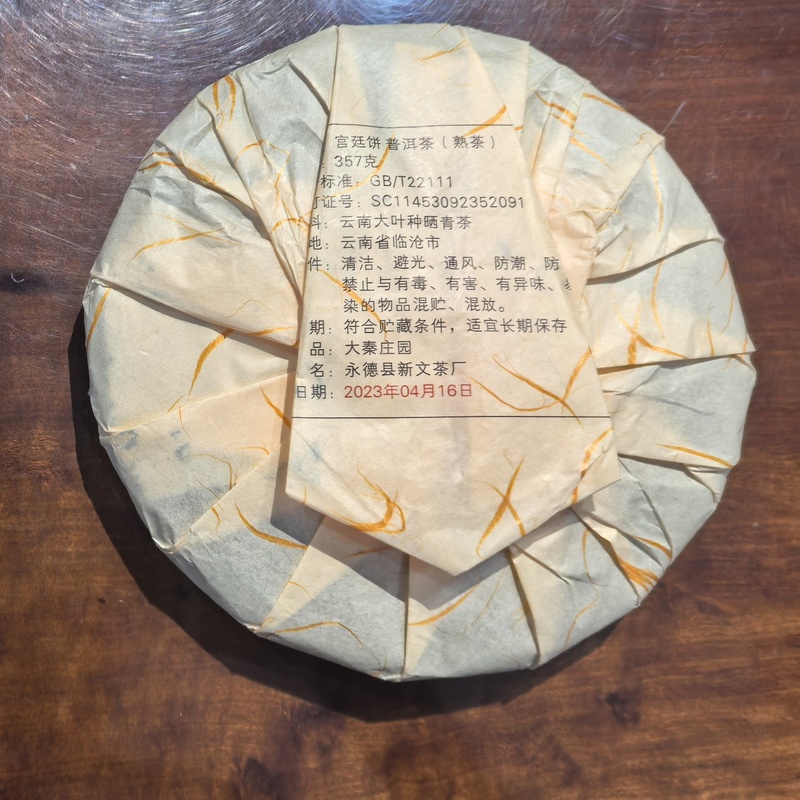 宫廷饼普洱茶（熟茶）
：357克
标准：GB/T22111
可证号：SC11453092352091
料：云南大叶种晒青茶
地：云南省临沧市
件：清洁、避光、通风、防潮、防
禁止与有毒、有害、有异味、易
染的物品混贮、混放。
期：符合贮藏条件，适宜长期保存
品：大秦庄园
名：永德县新文茶厂
日期：2023年04月16日